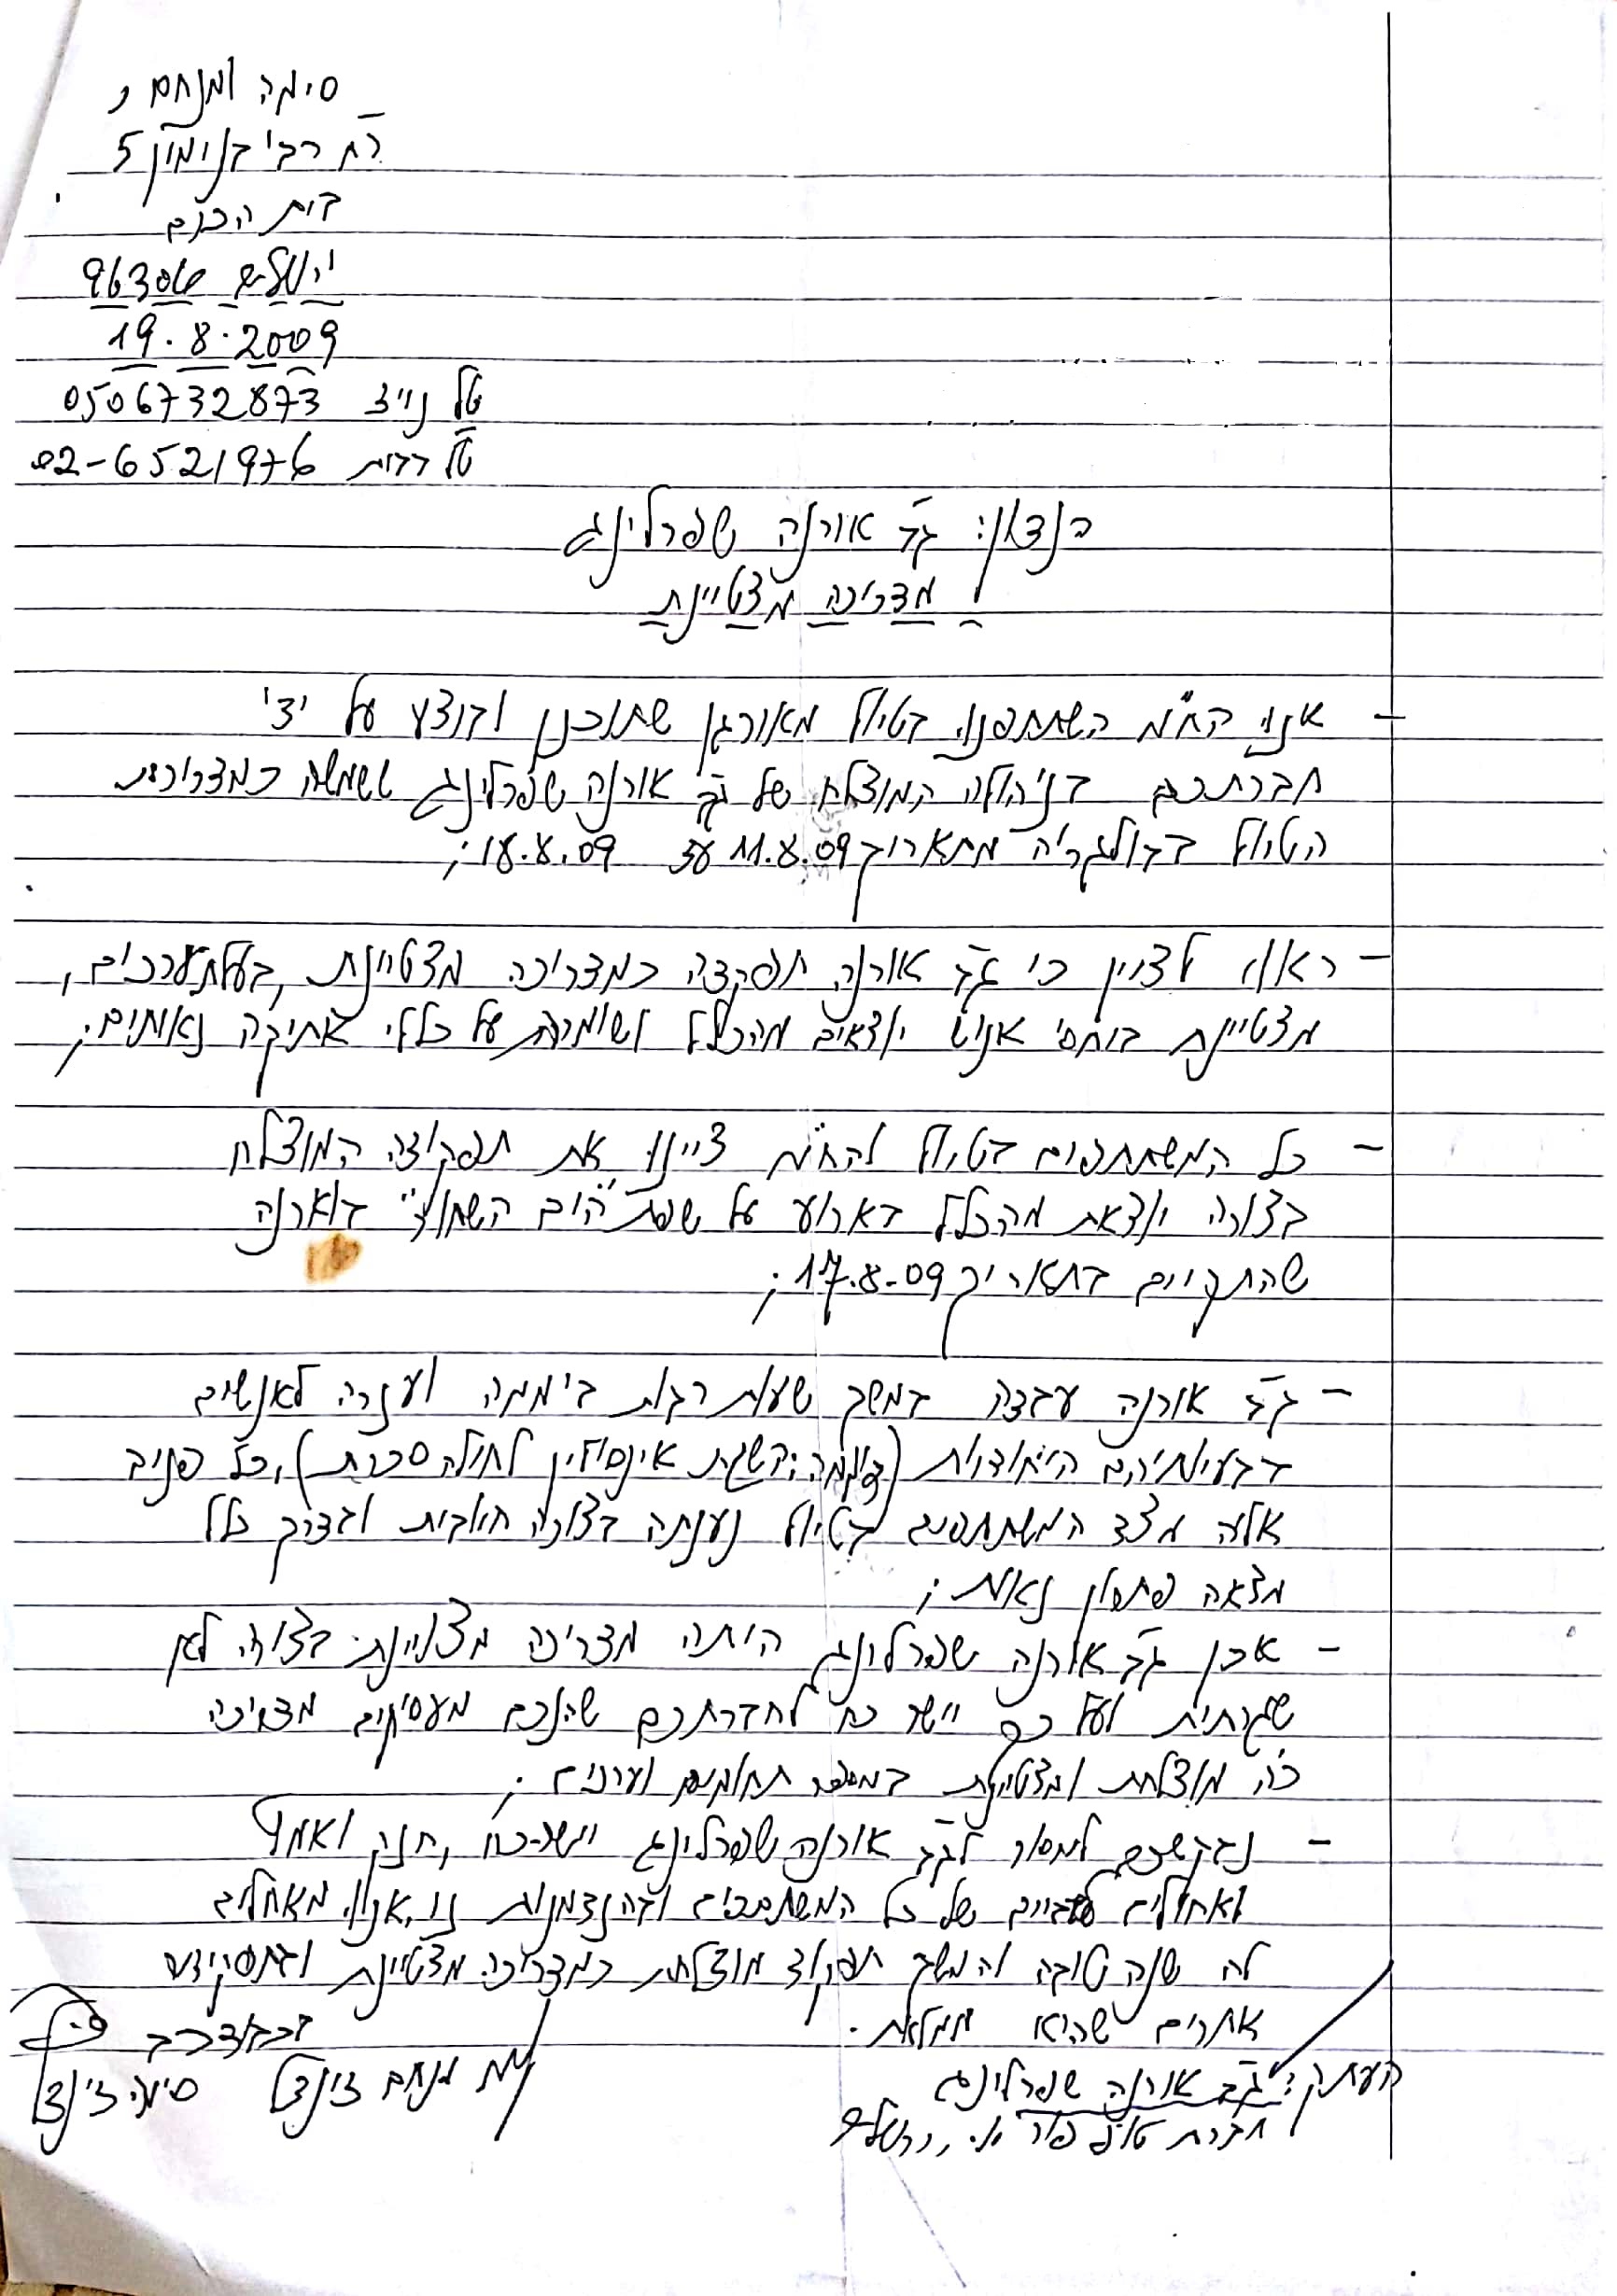 סימה ומנחם ז
רח' רבי בנימין 5
בית הכרם
ירושלים 96306
19.8.2009
טל נייד 0506732873
טל בבית 02-6521976
הנדון: גב' אורנה שפרלינג
מדריכה מצטיינת
- אנו הח"מ השתתפנו בטיול מאורגן שתוכנן ובוצע על ידי
חברתכם בניהולה המוצלח של גב' אורנה שפרלינג ששמשה כמדריכת
הטיול בבולגריה מתאריך 11.8.09 עד 18.8.09;
- ראוי לציין כי גב' אורנה תפקדה כמדריכה מצטיינת, בעלת ערכים,
מצטיינת ביחסי אנוש יוצאים מהכלל ושומרת על כללי אתיקה נאותים;
- כל המשתתפים בטיול להח"מ ציינו את תפקודה המוצלח
בצורה יוצאת מהכלל בארוע על שפת "הים השחור" בוארנה
שהתקיים בתאריך 17.8.09;
- גב' אורנה עבדה במשך שעות רבות ביממה ועזרה לאנשים
בבעיותיהם היחודיות (דוגמה: השגת אינסולין לחולה סכרת), כל פניה
אליה מצד המשתתפים בטיול נענתה בצורה חיובית ובדרך כלל
מצאה פתרון נאות;
- אכן גב' אורנה שפרלינג היתה מדריכה מצויינת בצורה לא
שגרתית ועל כך יישר כח לחברתכם שהנכם מעסיקים מדריכה
כ"כ מוצלחת ומצטיינת במספר תחומים וערכים;
- נבקשכם למסור לגב' אורנה שפרלינג יישר-כח, חזק ואמץ
ואחולים לבביים של כל המשתתפים ובהזדמנות זו, אנו מאחלים
לה שנה טובה והמשך תפקוד מוצלח כמדריכה מצטיינת ובתפקידים
אחרים שהיא ממלאת.
בכבוד רב
מנחם זינגד סימה זינגד
העתק: גב' אורנה שפרלינג
חברת ירושלים